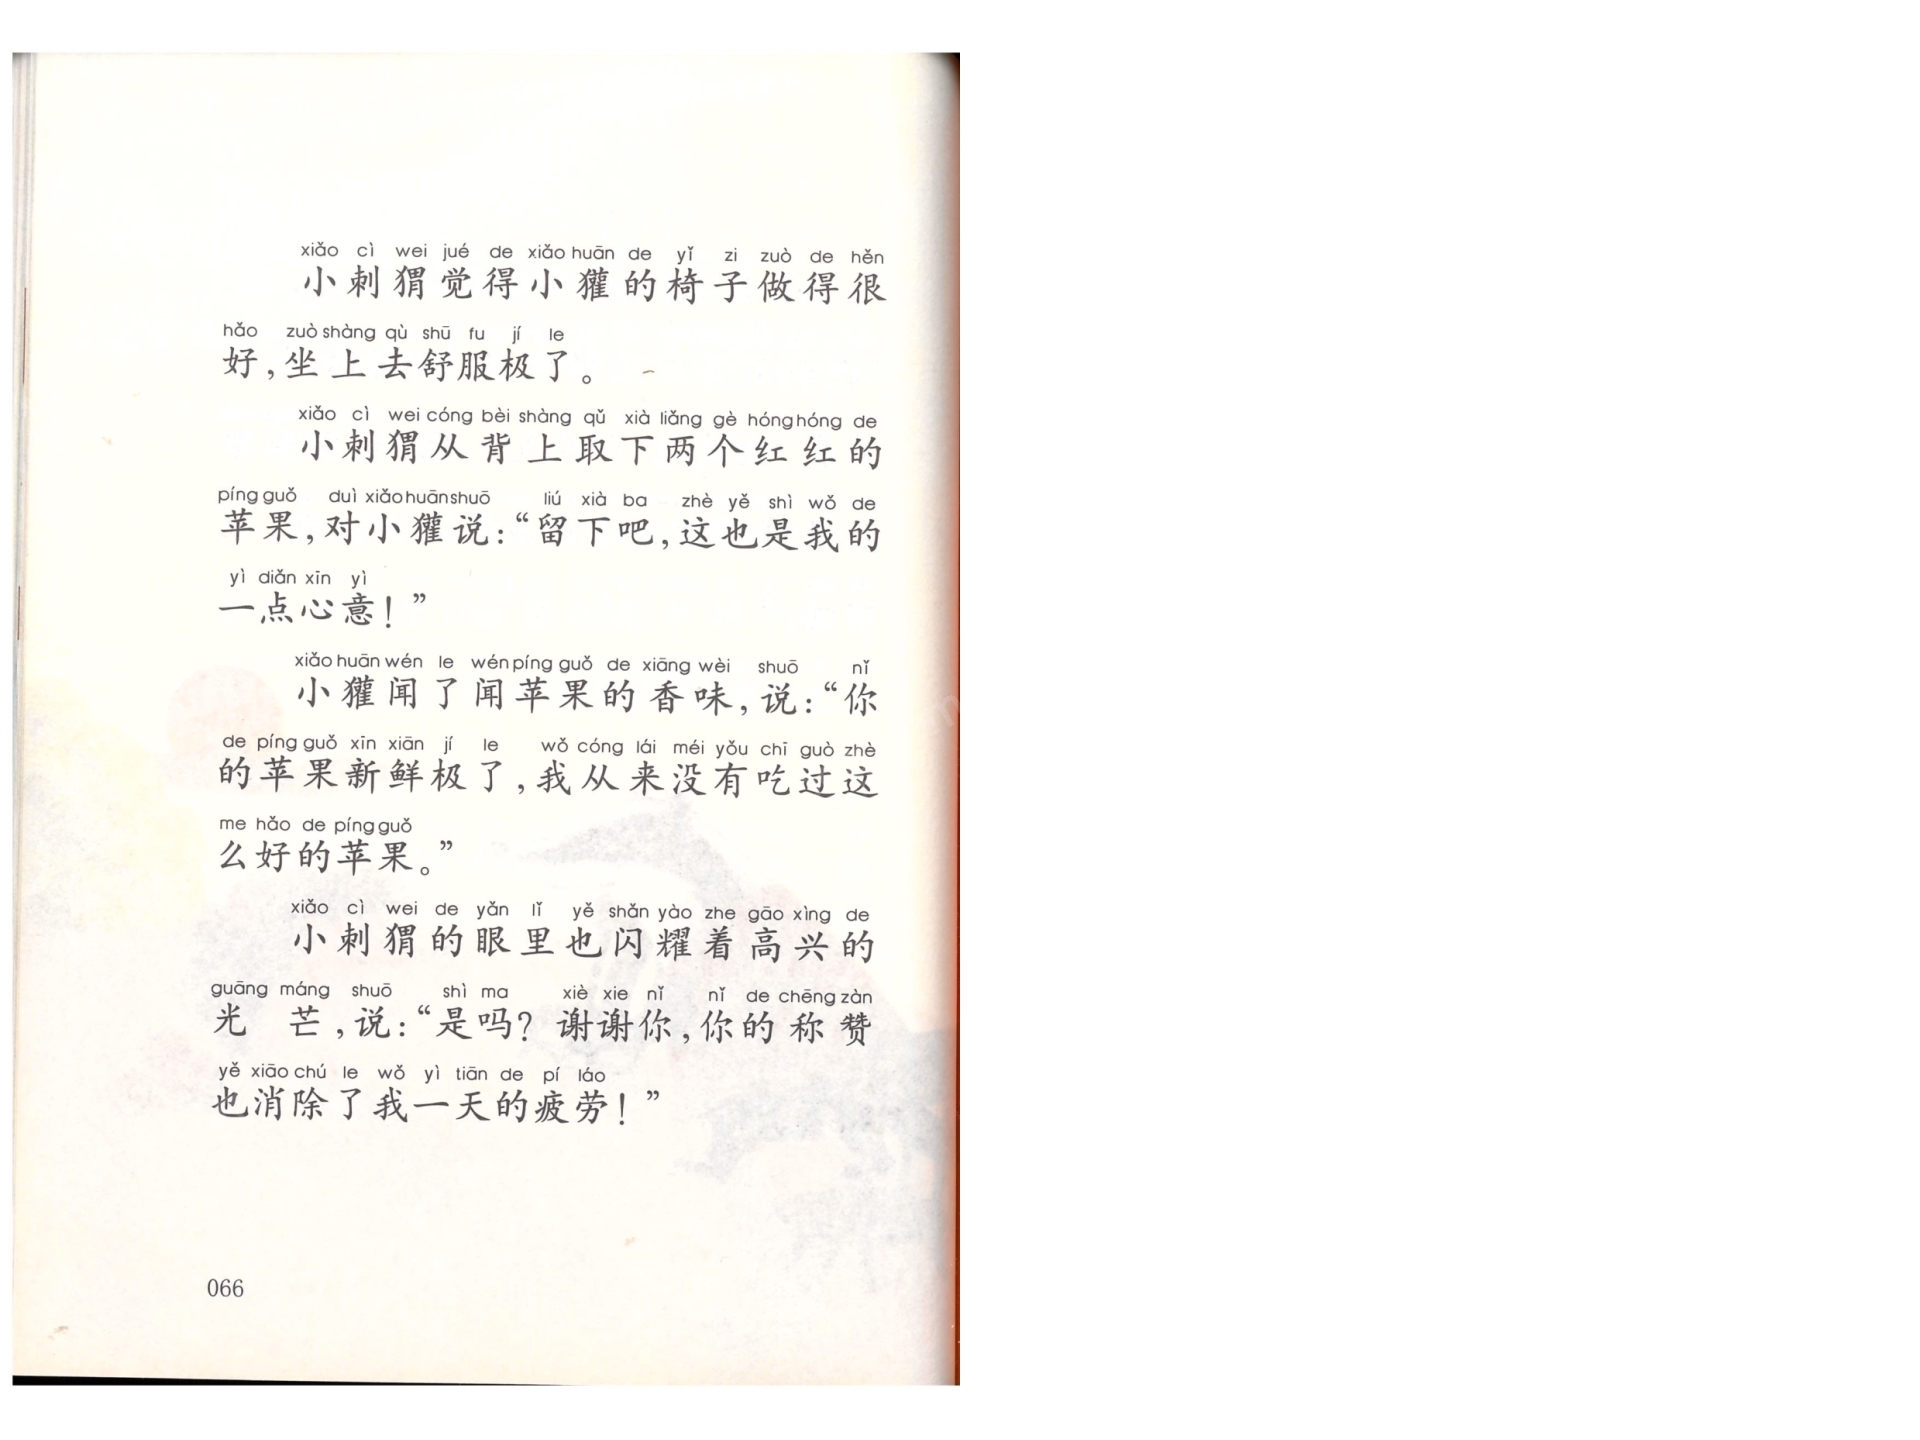 xiǎo cì wei jué de xiǎo huān de yǐ zi zuò de hěn
小刺猬觉得小獾的椅子做得很
hǎo zuò shàng qù shū fu jí le
好,坐上去舒服极了。
xiǎo cì wei cóng bèi shàng qǔ xià liǎng gè hóng hóng de
小刺猬从背上取下两个红红的
píng guǒ duì xiǎo huān shuō liú xià ba zhè yě shì wǒ de
苹果,对小獾说:“留下吧,这也是我的
yì diǎn xīn yì
一点心意!”
xiǎo huān wén le wén píng guǒ de xiāng wèi shuō nǐ
小獾闻了闻苹果的香味,说:“你
de píng guǒ xīn xiān jí le wǒ cóng lái méi yǒu chī guò zhè
的苹果新鲜极了,我从来没有吃过这
me hǎo de píng guǒ
么好的苹果。”
xiǎo cì wei de yǎn lǐ yě shǎn yào zhe gāo xìng de
小刺猬的眼里也闪耀着高兴的
guāng máng shuō shì ma xiè xie nǐ nǐ de chēng zàn
光芒,说:“是吗?谢谢你,你的称赞
yě xiāo chú le wǒ yì tiān de pí láo
也消除了我一天的疲劳!”
066